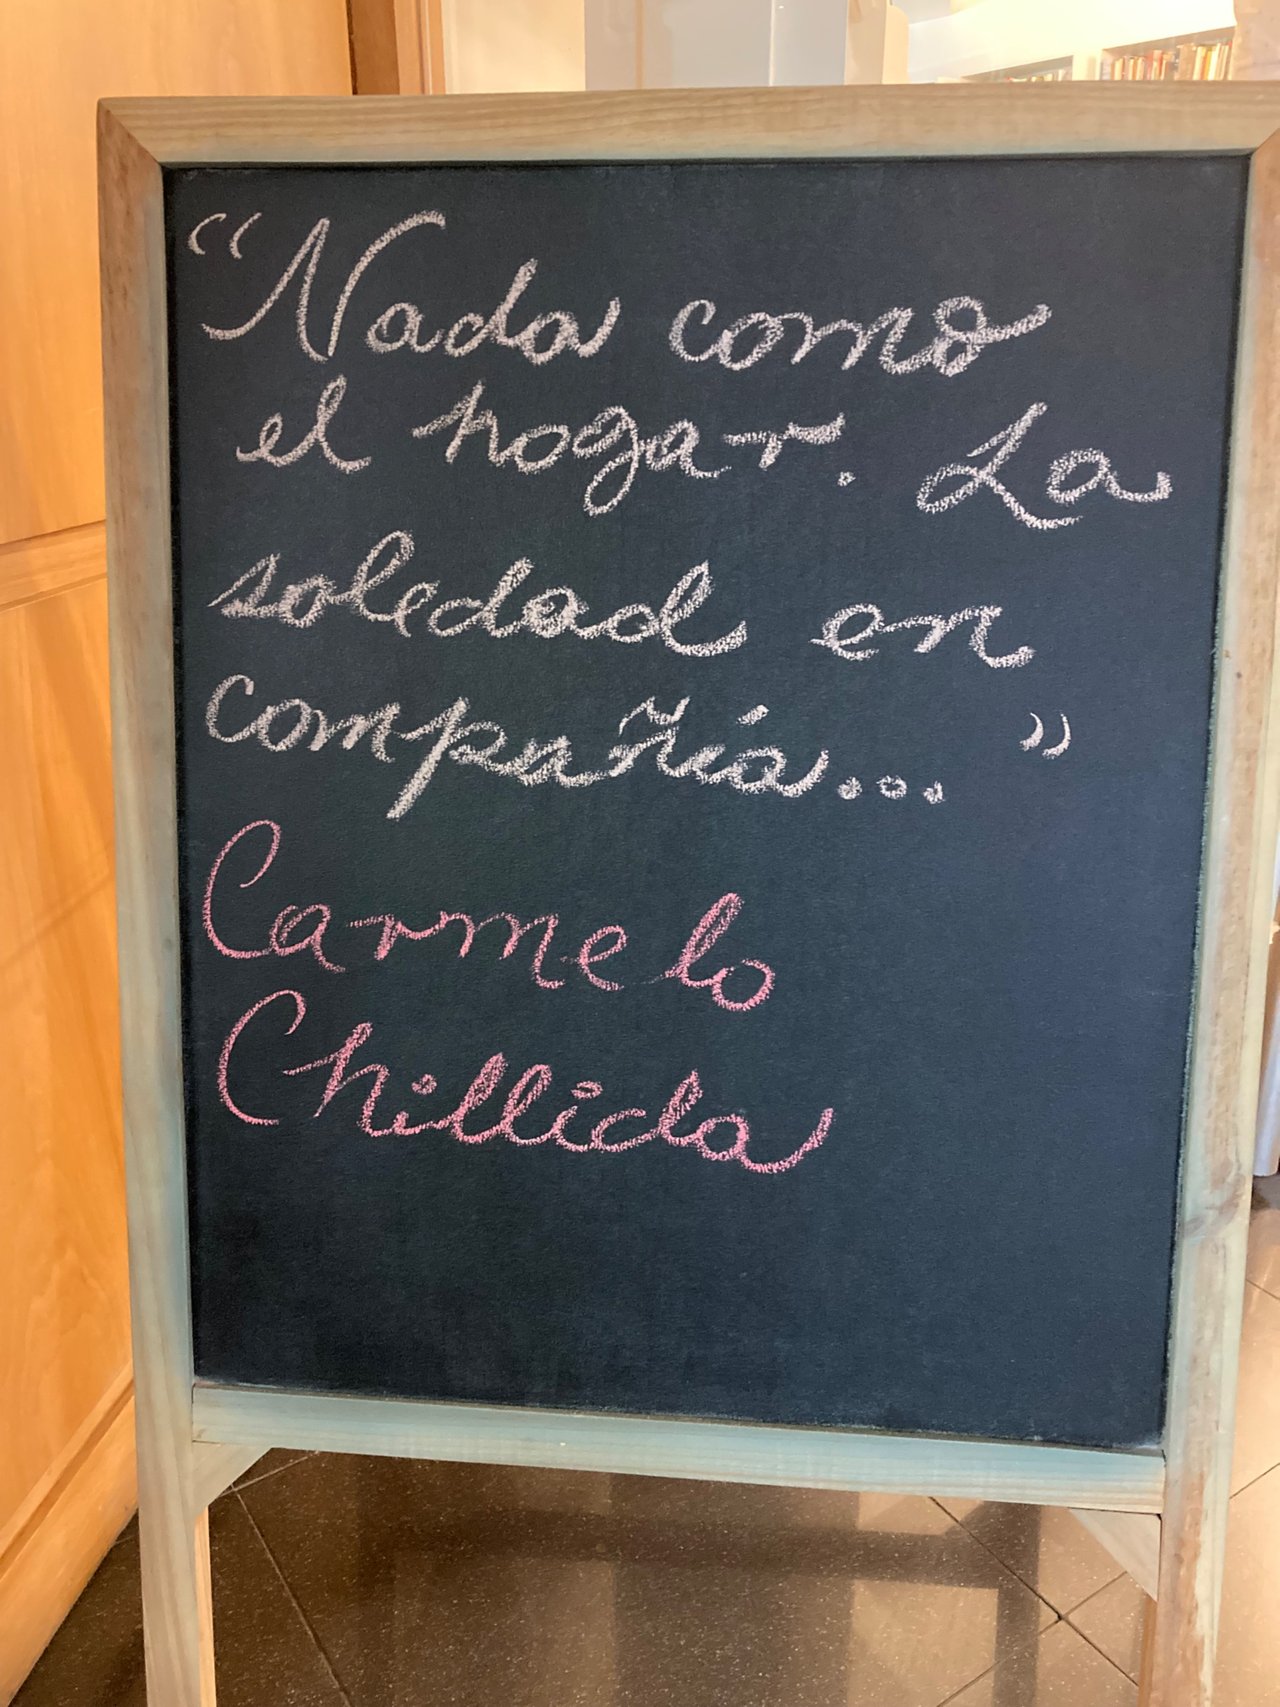 “Nada como
el hogar. La
soledad en
compañía... ”
Carmelo
Chillida